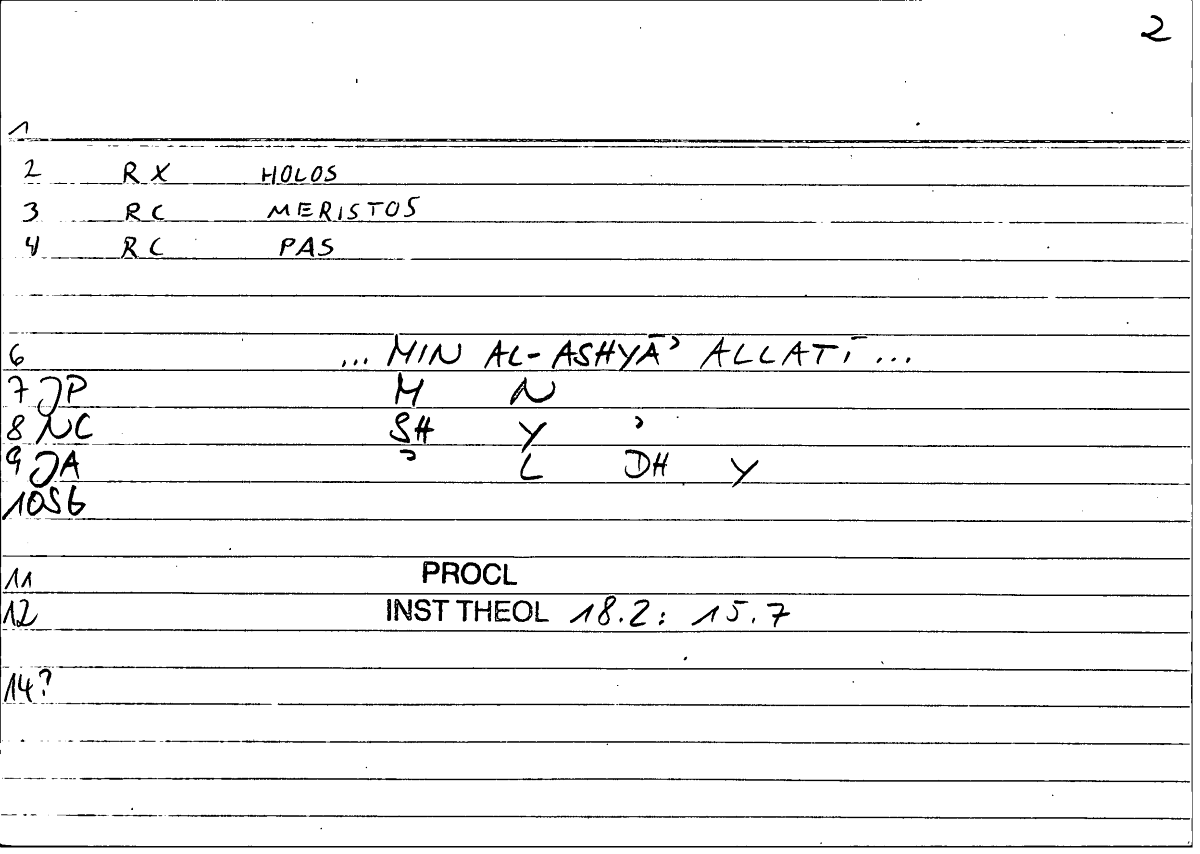 2
1
2 RX HOLOS
3 RC MERISTOS
4 RC PAS
6 ... MIN AL-ASHYĀʾ ALLATĪ ...
7 JP M N
8 NC SH Y ʾ
9 JA ʾ L DH Y
10 SG
11 PROCL
12 INST THEOL 18.2: 15.7
14?